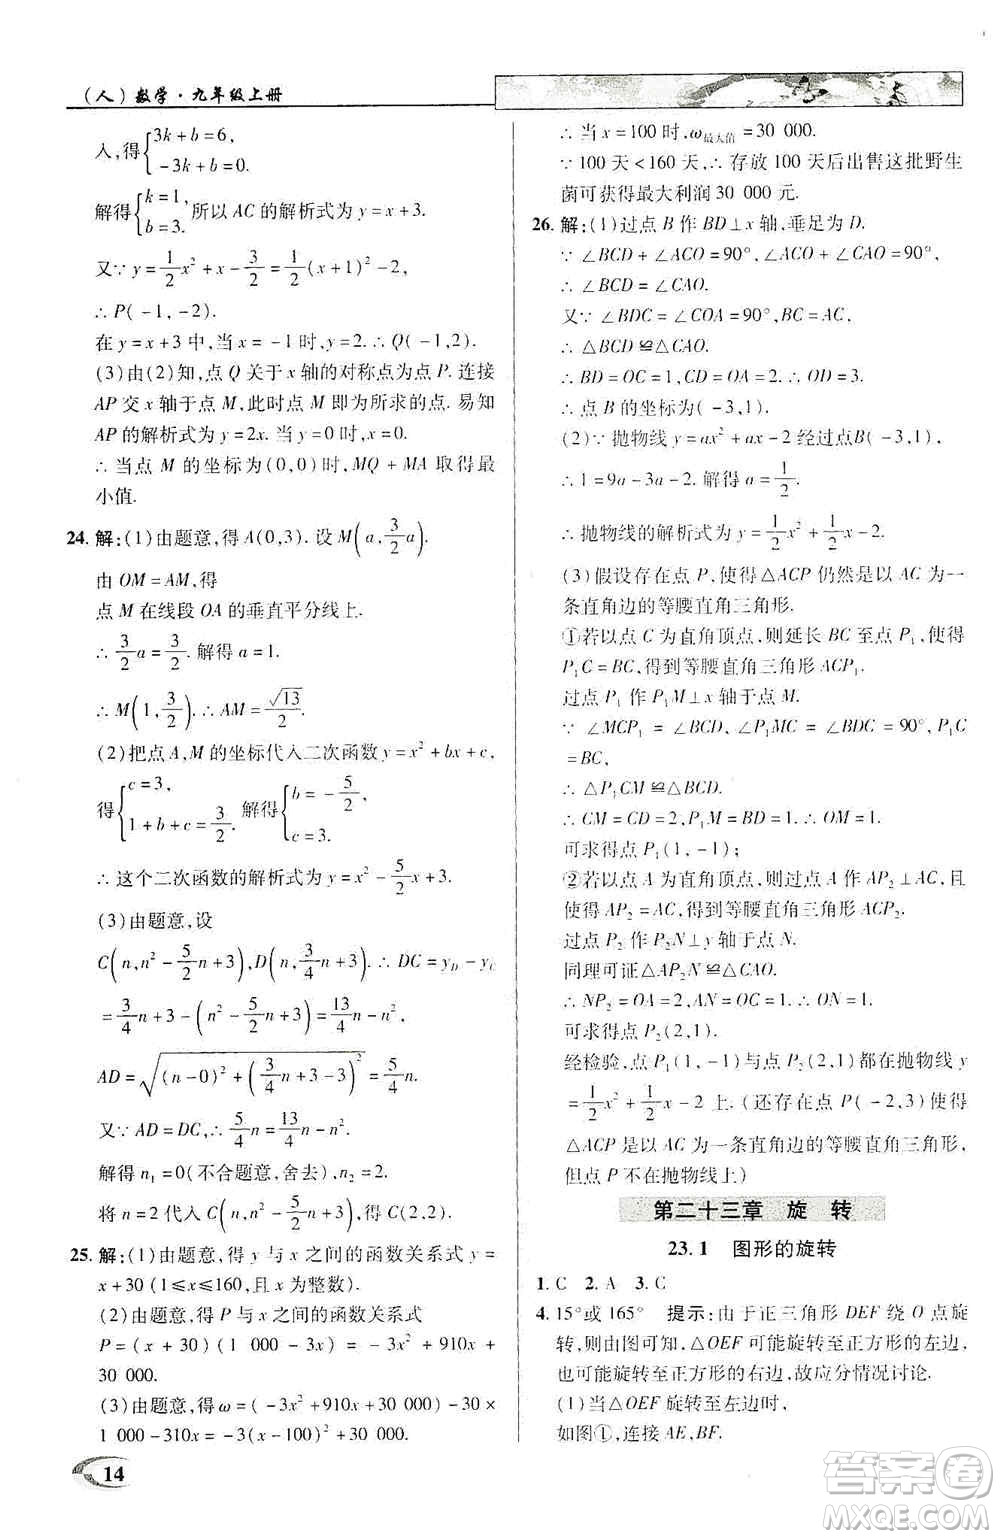 （人）数学·九年级上册
入,得{3k+b=6,
-3k+b=0.
解得{k=1,
b=3.所以 AC 的解析式为 y=x+3.
又∵ y=1/2x²+x-3/2=1/2(x+1)²-2,
∴ P(-1,-2).
在 y=x+3 中,当 x=-1 时,y=2.∴ Q(-1,2).
(3)由(2)知,点 Q 关于 x 轴的对称点为点 P.连接
AP 交 x 轴于点 M,此时点 M 即为所求的点.易知
AP 的解析式为 y=2x.当 y=0 时,x=0.
∴ 当点 M 的坐标为(0,0)时,MQ+MA 取得最
小值.
24. 解:(1)由题意,得 A(0,3).设 M(a,3/2a).
由 OM=AM,得
点 M 在线段 OA 的垂直平分线上.
∴ 3/2a=3/2.解得 a=1.
∴ M(1,3/2).∴ AM=√13/2.
(2)把点 A,M 的坐标代入二次函数 y=x²+bx+c,
得{c=3,
1+b+c=3/2. 解得{b=-5/2,
c=3.
∴ 这个二次函数的解析式为 y=x²-5/2x+3.
(3)由题意,设
C(n,n²-5/2n+3),D(n,3/4n+3).∴ DC=y_D-y_C
=3/4n+3-(n²-5/2n+3)=13/4n-n²,
AD=√((n-0)²+(3/4n+3-3)²)=5/4n.
又∵ AD=DC,∴ 5/4n=13/4n-n².
解得 n₁=0(不合题意,舍去),n₂=2.
将 n=2 代入 C(n,n²-5/2n+3),得 C(2,2).
25. 解:(1)由题意,得 y 与 x 之间的函数关系式 y=
x+30(1≤x≤160,且 x 为整数).
(2)由题意,得 P 与 x 之间的函数关系式
P=(x+30)(1 000-3x)=-3x²+910x+
30 000.
(3)由题意,得 ω=(-3x²+910x+30 000)-30×
1 000-310x=-3(x-100)²+30 000.
∴ 当 x=100 时,ω最大值=30 000.
∵ 100 天<160 天,∴ 存放 100 天后出售这批野生
菌可获得最大利润 30 000 元.
26. 解:(1)过点 B 作 BD⊥x 轴,垂足为 D.
∵ ∠BCD+∠ACO=90°,∠ACO+∠CAO=90°,
∴ ∠BCD=∠CAO.
又∵ ∠BDC=∠COA=90°,BC=AC,
∴ △BCD≌△CAO.
∴ BD=OC=1,CD=OA=2.∴ OD=3.
∴ 点 B 的坐标为(-3,1).
(2)∵ 抛物线 y=ax²+ax-2 经过点 B(-3,1),
∴ 1=9a-3a-2.解得 a=1/2.
∴ 抛物线的解析式为 y=1/2x²+1/2x-2.
(3)假设存在点 P,使得△ACP 仍然是以 AC 为一
条直角边的等腰直角三角形.
①若以点 C 为直角顶点,则延长 BC 至点 P₁,使得
P₁C=BC,得到等腰直角三角形 ACP₁.
过点 P₁ 作 P₁M⊥x 轴于点 M.
∵ ∠MCP₁=∠BCD,∠P₁MC=∠BDC=90°,P₁C
=BC,
∴ △P₁CM≌△BCD.
∴ CM=CD=2,P₁M=BD=1.∴ OM=1.
可求得点 P₁(1,-1);
②若以点 A 为直角顶点,则过点 A 作 AP₂⊥AC,且
使得 AP₂=AC,得到等腰直角三角形 ACP₂.
过点 P₂ 作 P₂N⊥y 轴于点 N.
同理可证△AP₂N≌△CAO.
∴ NP₂=OA=2,AN=OC=1.∴ ON=1.
可求得点 P₂(2,1).
经检验,点 P₁(1,-1)与点 P₂(2,1)都在抛物线 y
=1/2x²+1/2x-2 上.(还存在点 P(-2,3)使得
△ACP 是以 AC 为一条直角边的等腰直角三角形,
但点 P 不在抛物线上)
第二十三章 旋 转
23.1 图形的旋转
1. C 2. A 3. C
4. 15°或 165° 提示:由于正三角形 DEF 绕 O 点旋
转,则由图可知,△OEF 可能旋转至正方形的左边,
也可能旋转至正方形的右边,故应分情况讨论.
(1)当△OEF 旋转至左边时,
如图①,连接 AE,BF.
14
答案卷
MXQE.COM